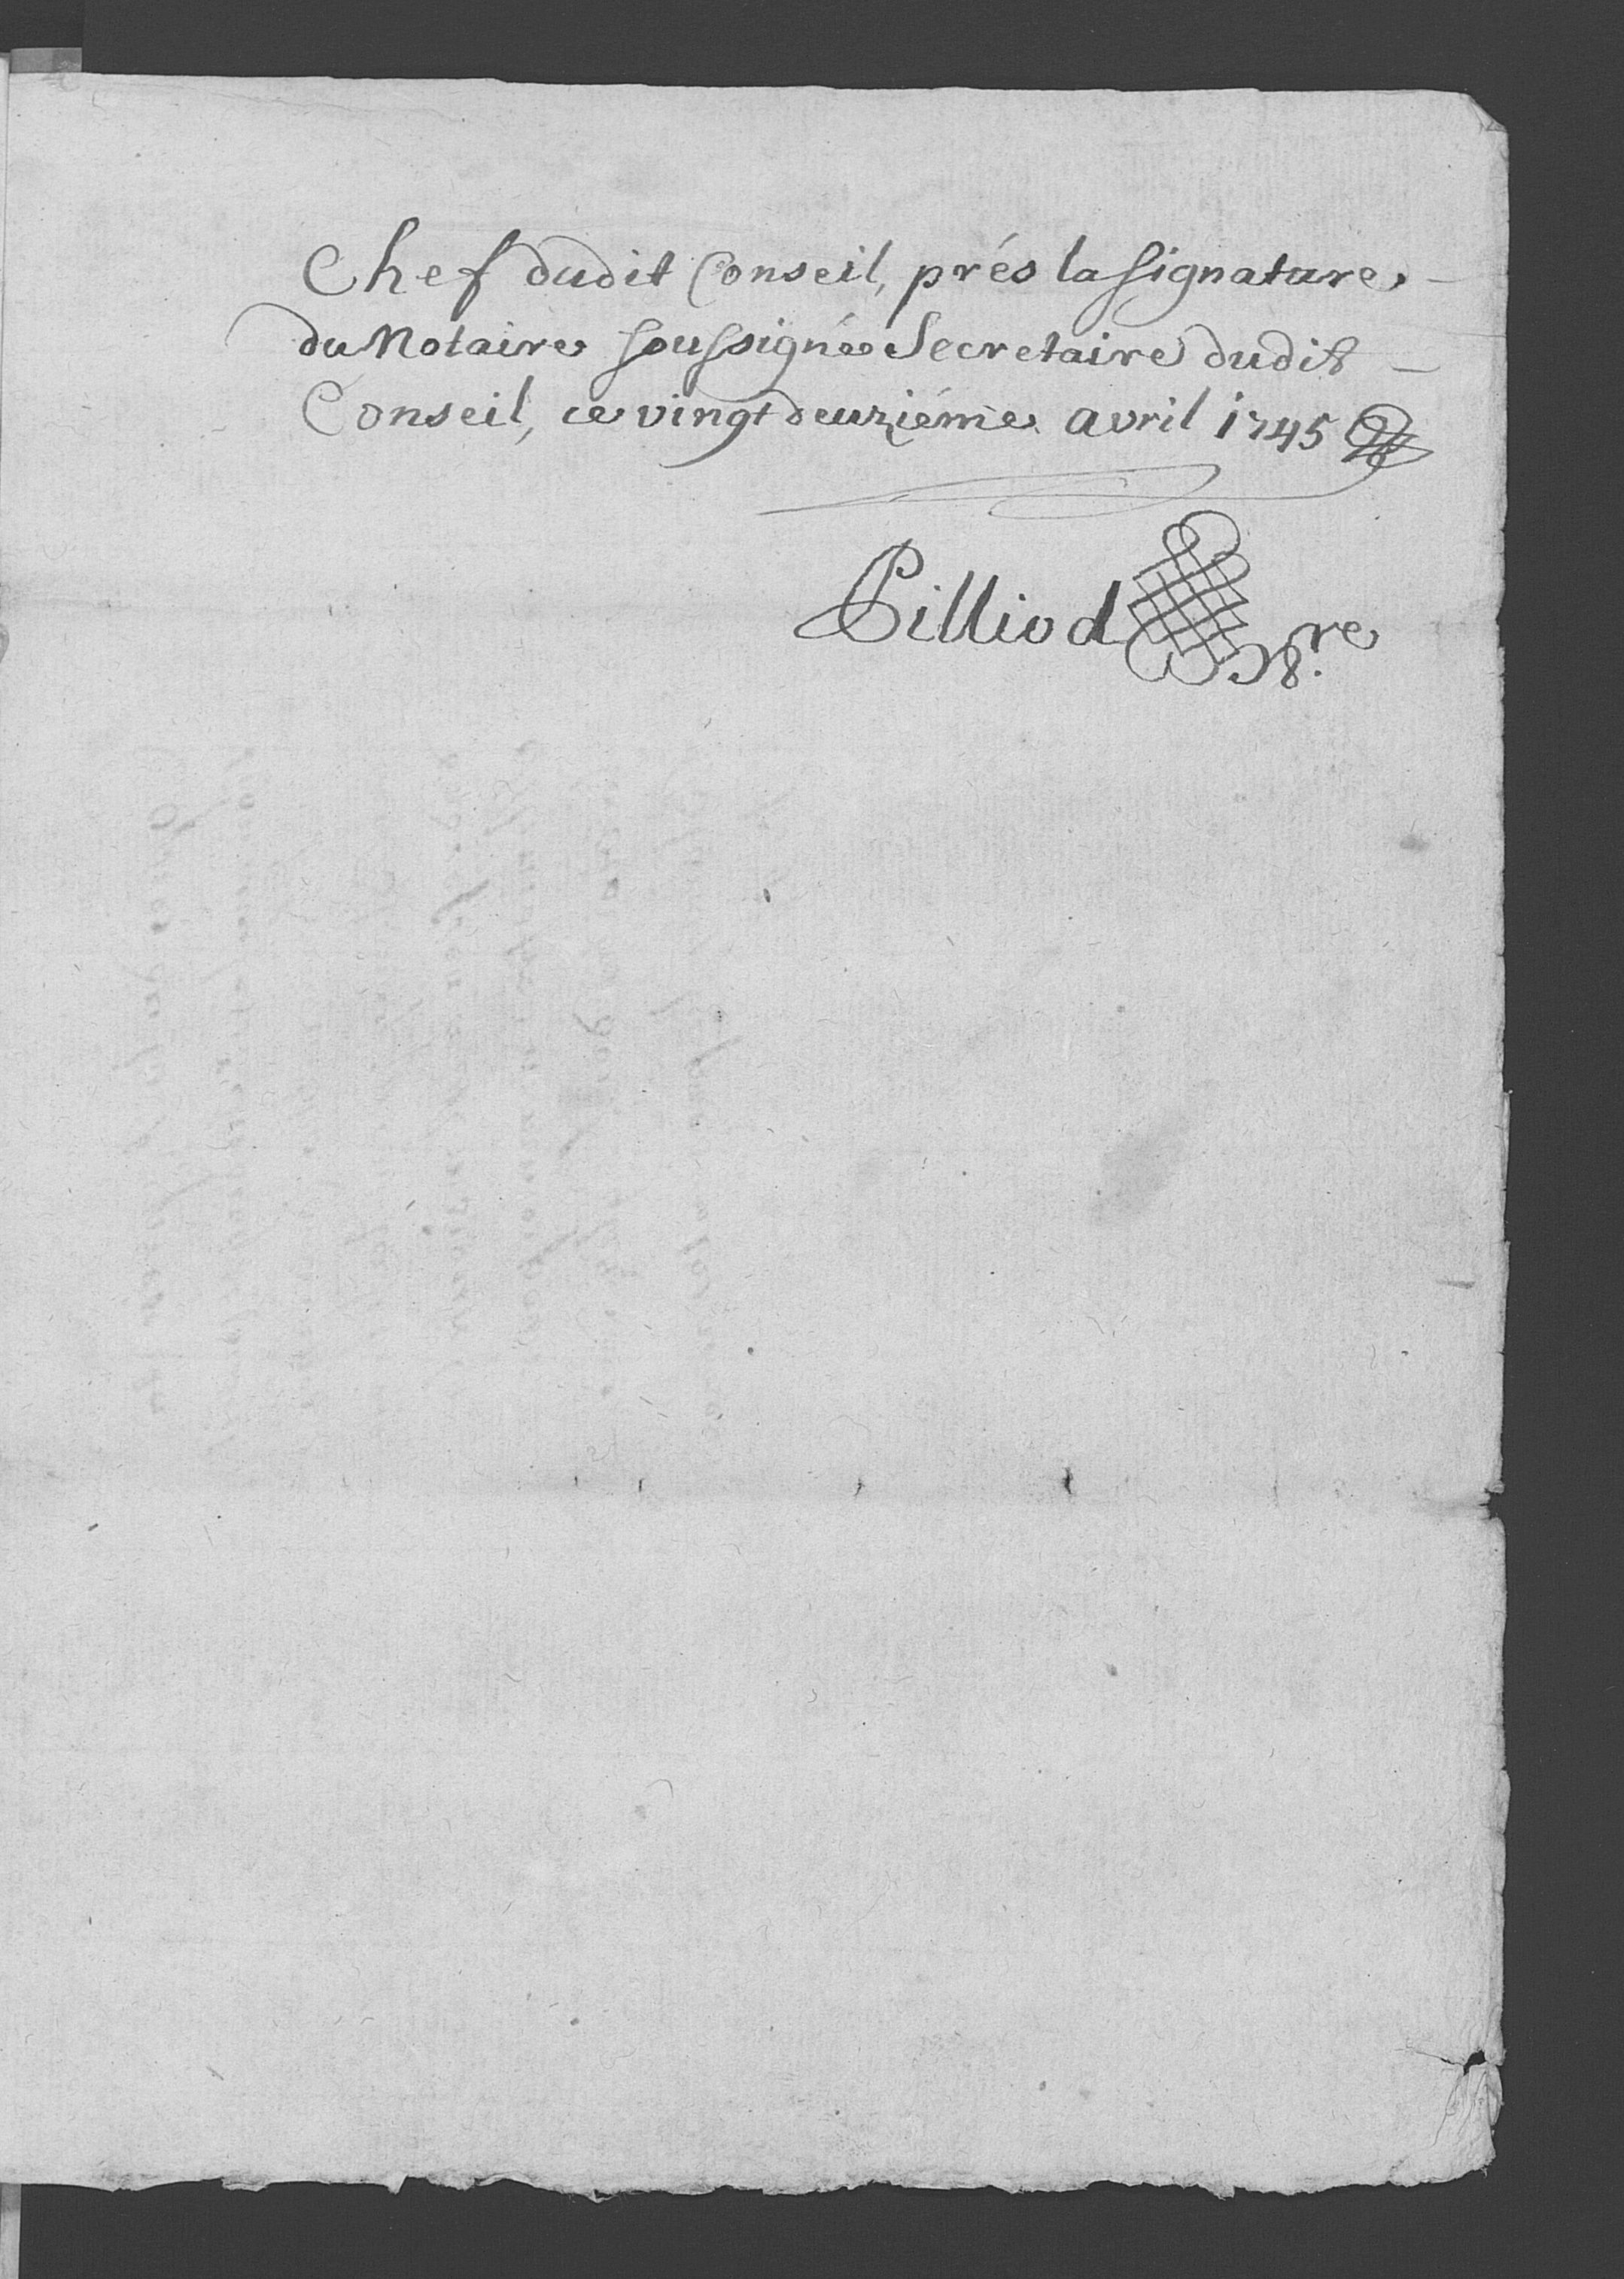 Chef dudit Conseil, prés la signature
du Notaire soussigné Secretaire dudit
Conseil, ce vingt deuziéme avril 1745
Pilliod